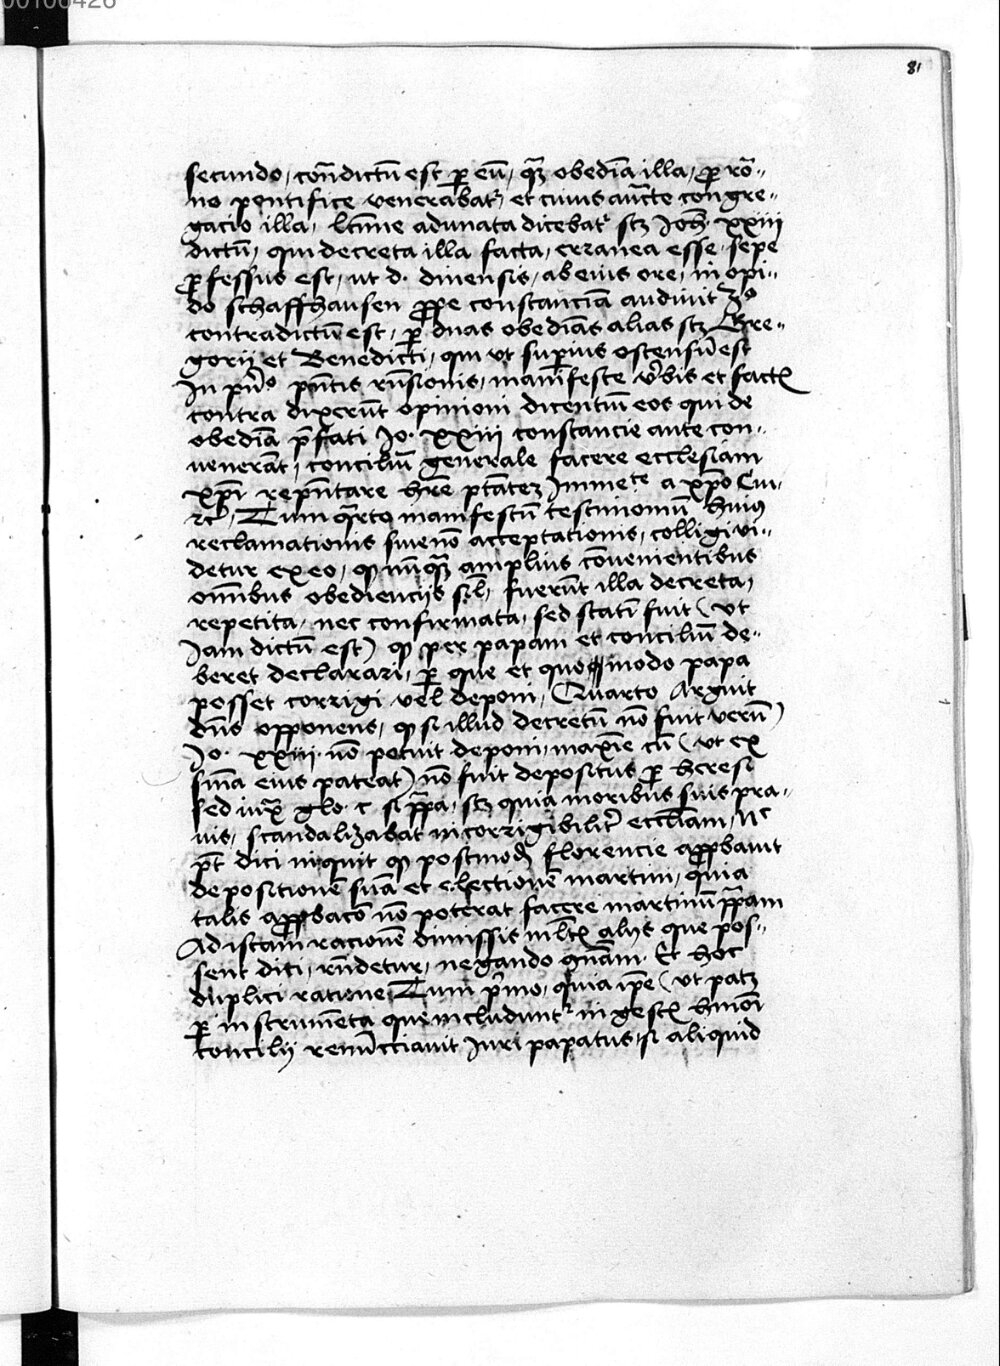 00106426
81
secundo, cōndictū est ꝑ eū, quā obediā illa, ꝓ ro᷑-
no pontifice venerabatᷣ, et cuius aucͭte congre-
gacio illa, ltīme adunata dicebatᷣ scꝫ Joh̄. xxiii
dictū, qui decreta illa facta, erranea esse, sepe
ꝓfessus est, ut d. diuensis, ab eius ore, in opi-
do schaffhausen ꝓpe constanciā audiuit 3º
contradictū est, ꝑ duas obediās alias scꝫ Gre-
gorij et Benedicti, qui vt supius ostensū est
In pnͦ. pn̄tis rn̄sionis, manifeste vᷣbis et factꝭ
contra dixerūt opinioni dicentiū eos qui de
obediā p̄fati Jo. xxiii constancie ante con-
uenerāt, conciliū generale facere ecclesiam
xp̄i repn̄tare hr̄e ptāteꝫ Immeͭe a xp̄o Cui,
rc̄, Tum quarto manifestū testimoniū huius
reclamationis siue nō acceptationis, colligi vi-
detur ex eo, qꝫ nūquā amplius conuenientibus
omībus obedienciis sīl, fuerūt illa decreta,
repetita, nec confirmata, sed statī fuit (vt
Jam dictū est) ꝙ per papam et conciliū de-
beret declarari, ꝑ que et quo modo papa
posset corrigi vel deponi, Quarto Arguit
dn̄s opponens, ꝙ si illud decretū nō fuit verū)
Jo. xxiii. nō potuit deponi, maxīe cū (vt ex
sn̄ia eius pateat) nō fuit depositus ꝑ heresi
sed iuxᵃ glo. c si pp̄a, scꝫ quia moribus suis pra-
uis, scandalizabat incorrigibilitᷣ eccliam, Nͨ
pt̄ dici inquit ꝙ postmodꝫ florencie apꝓbauit
depositionē suā et electionē martini, quia
talis apꝓbacō nō poterat facere martinū pp̄am
Ad istam racionē dimissis mltꝭ alijs que pos-
sent dici, rn̄detur, negando qn̄am. Et hoc
duplici ratione Tum pᷣmo, quia ip̄e (vt patꝫ
ꝑ instrumēta que includuntᷣ in gestꝭ hmōi
concilij renūcciauit Juri papatus, si aliquid